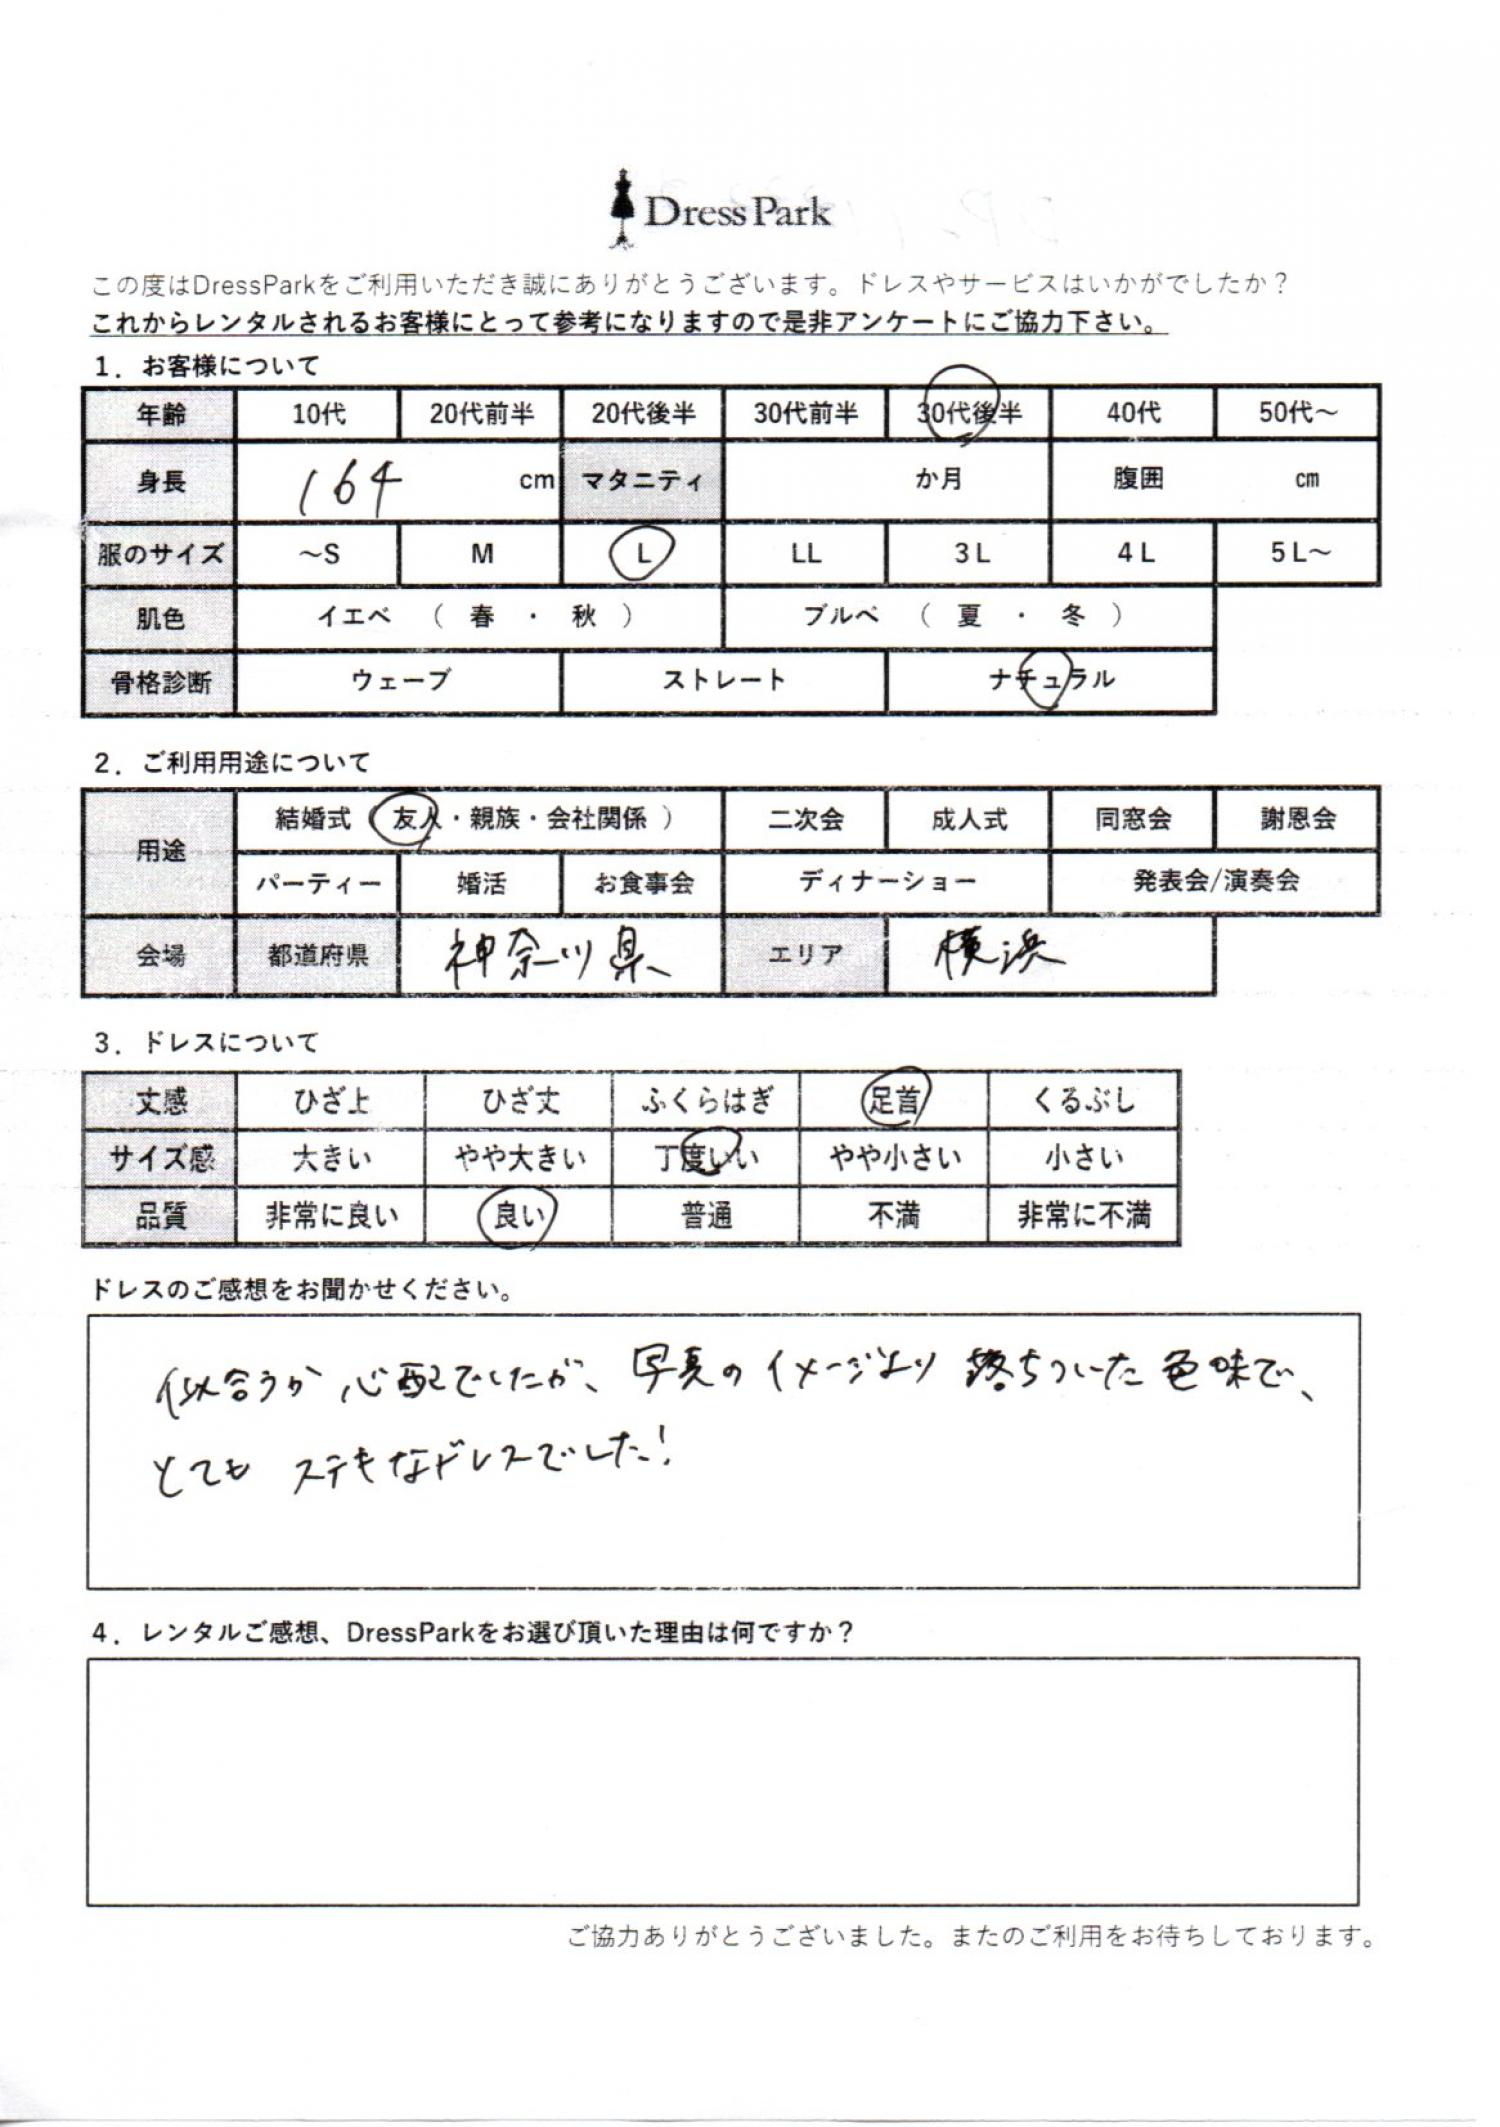 DressPark
この度はDressParkをご利用いただき誠にありがとうございます。ドレスやサービスはいかがでしたか？
これからレンタルされるお客様にとって参考になりますので是非アンケートにご協力下さい。
1．お客様について
年齢 10代 20代前半 20代後半 30代前半 30代後半 40代 50代～
身長 164 cm マタニティ か月 腹囲 ㎝
服のサイズ ～S M L LL 3L 4L 5L～
肌色 イエベ （ 春 ・ 秋 ） ブルベ （ 夏 ・ 冬 ）
骨格診断 ウェーブ ストレート ナチュラル
2．ご利用用途について
用途 結婚式（ 友人・親族・会社関係 ） 二次会 成人式 同窓会 謝恩会
パーティー 婚活 お食事会 ディナーショー 発表会/演奏会
会場 都道府県 神奈川県 エリア 横浜
3．ドレスについて
丈感 ひざ上 ひざ丈 ふくらはぎ 足首 くるぶし
サイズ感 大きい やや大きい 丁度いい やや小さい 小さい
品質 非常に良い 良い 普通 不満 非常に不満
ドレスのご感想をお聞かせください。
似合うか心配でしたが、写真のイメージより落ちついた色味で、
とても ステキなドレスでした！
4．レンタルご感想、DressParkをお選び頂いた理由は何ですか？
ご協力ありがとうございました。またのご利用をお待ちしております。